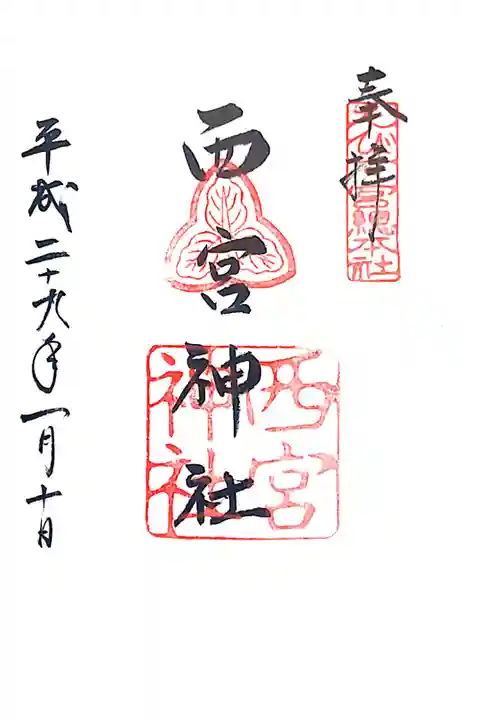 奉拝
えびす宮総本社
西宮神社
西宮
神社
平成二十九年一月十日